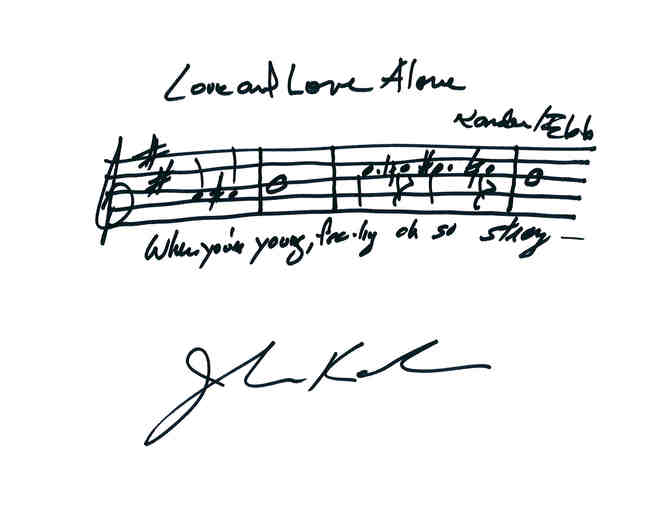 Love and Love Alone
Kander/Ebb
When you're young, feeling oh so strong —
John Kander